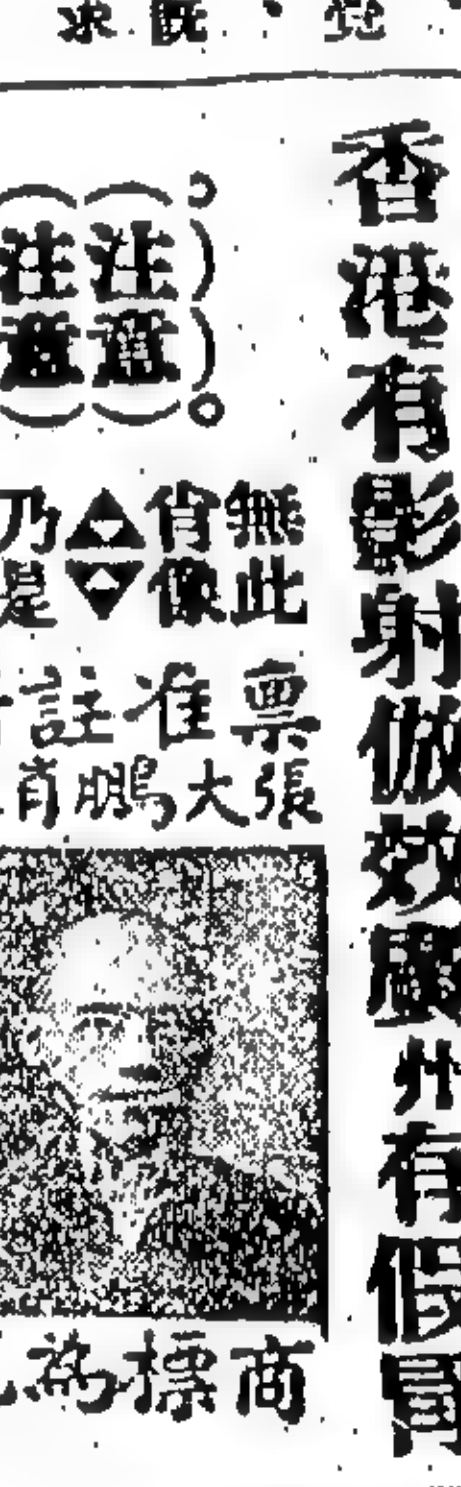 香港有影射倣效廣州有假冒
(注意)
(注意)
無此
肖像
乃是
票准註
張大鵬肖
商標為